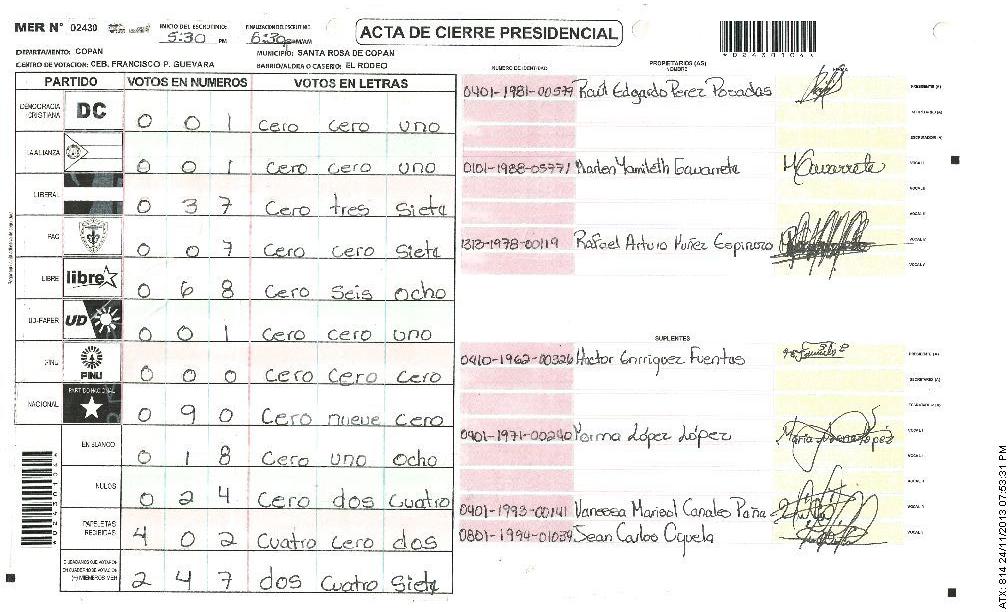 MER N° 02430
INICIO DEL ESCRUTINIO: 5:30 PM
FINALIZACION DEL ESCRUTINIO: 6:30 PM/AM
ACTA DE CIERRE PRESIDENCIAL
DEPARTAMENTO: COPAN
MUNICIPIO: SANTA ROSA DE COPAN
CENTRO DE VOTACION: CEB. FRANCISCO P. GUEVARA
BARRIO/ALDEA O CASERIO: EL RODEO
PARTIDO VOTOS EN NUMEROS VOTOS EN LETRAS
DEMOCRACIA CRISTIANA DC 0 0 1 cero cero uno
LA ALIANZA 0 0 1 cero cero uno
LIBERAL 0 3 7 Cero tres Siete
PAC 0 0 7 Cero Cero Siete
LIBRE libre 0 6 8 Cero Seis Ocho
UD-FAPER UD 0 0 1 Cero cero uno
PINU PINU 0 0 0 Cero Cero Cero
NACIONAL PARTIDO NACIONAL 0 9 0 Cero nueve cero
EN BLANCO 0 1 8 Cero uno Ocho
NULOS 0 2 4 Cero dos Cuatro
PAPELETAS RECIBIDAS 4 0 2 Cuatro Cero dos
CIUDADANOS QUE VOTARON EN CUADERNO DE VOTACION (+) MIEMBROS MER 2 4 7 dos Cuatro Siete
NUMERO DE IDENTIDAD
PROPIETARIOS (AS)
NOMBRE
0401-1981-00579 Raúl Edgardo Perez Posadas PRESIDENTE (A)
SECRETARIO (A)
ESCRUTADOR (A)
0101-1988-05771 Marlen Yamileth Gavarrete M Gavarrete VOCAL I
VOCAL II
VOCAL III
1313-1978-00119 Rafael Arturo Nuñez Espinoza VOCAL IV
VOCAL V
SUPLENTES
0410-1962-00326 Hector Enrriquez Fuentes PRESIDENTE (A)
SECRETARIO (A)
ESCRUTADOR (A)
0401-1971-00240 Norma López López VOCAL I
VOCAL II
0401-1993-00141 Vanessa Marisol Canales Paña
0801-1994-01039 Jean Carlos
ATX: 814 24/11/2013 07:53:31 PM